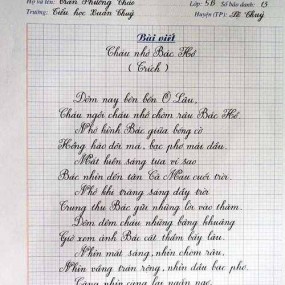 Họ và tên: Trần Phương Thảo Lớp: 5B Số báo danh: 13
Trường: Tiểu học Xuân Thuỷ Huyện (TP): Lệ Thuỷ
Bài viết
Cháu nhớ Bác Hồ
( Trích )
Đêm nay bên bến Ô Lâu,
Cháu ngồi cháu nhớ chòm râu Bác Hồ.
Nhớ hình Bác giữa bóng cờ
Hồng hào đôi má, bạc phơ mái đầu.
Mắt hiền sáng tựa vì sao
Bác nhìn đến tận Cà Mau cuối trời.
Nhớ khi trăng sáng đầy trời
Trung thu Bác gửi những lời vào thăm.
Đêm đêm cháu những bâng khuâng
Giở xem ảnh Bác cất thầm bấy lâu.
Nhìn mắt sáng, nhìn chòm râu,
Nhìn vầng trán rộng, nhìn đầu bạc phơ.
Càng nhìn càng lại ngẩn ngơ,